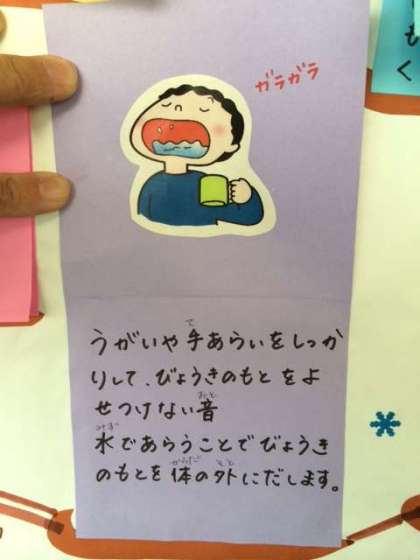 も
く
ガラガラ
うがいや手あらいをしっか
て
りして、びょうきのもとをよ
せつけない音
おと
水であらうことでびょうき
みず
のもとを体の外にだします。
からだ
そと